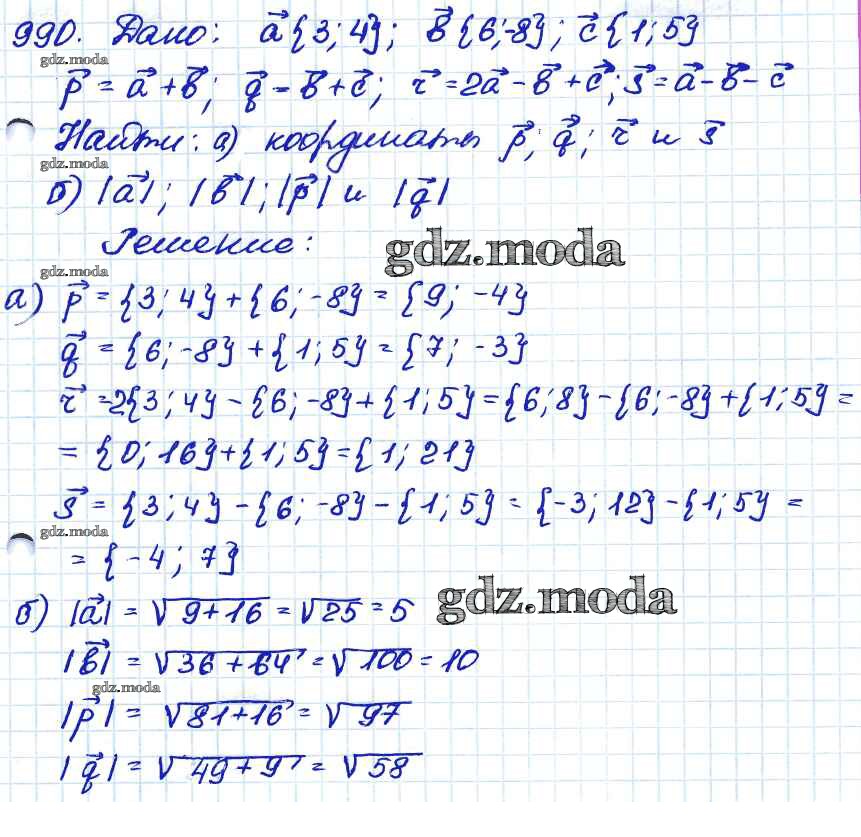 990. Дано: a⃗{3; 4}; b⃗{6;-8}; c⃗{1; 5}
gdz.moda
p⃗ = a⃗ + b⃗; q⃗ = b⃗ + c⃗; r⃗ = 2a⃗ - b⃗ + c⃗; s⃗ = a⃗ - b⃗ - c⃗
Найти: а) координаты p⃗; q⃗; r⃗ и s⃗
gdz.moda
б) |a⃗|; |b⃗|; |p⃗| и |q⃗|
Решение:
gdz.moda
gdz.moda
а) p⃗ = {3; 4} + {6; -8} = {9; -4}
q⃗ = {6; -8} + {1; 5} = {7; -3}
r⃗ = 2{3; 4} - {6; -8} + {1; 5} = {6; 8} - {6; -8} + {1; 5} =
= {0; 16} + {1; 5} = {1; 21}
s⃗ = {3; 4} - {6; -8} - {1; 5} = {-3; 12} - {1; 5} =
gdz.moda
= {-4; 7}
gdz.moda
б) |a⃗| = √9+16 = √25 = 5
|b⃗| = √36+64 = √100 = 10
gdz.moda
|p⃗| = √81+16 = √97
|q⃗| = √49+9 = √58